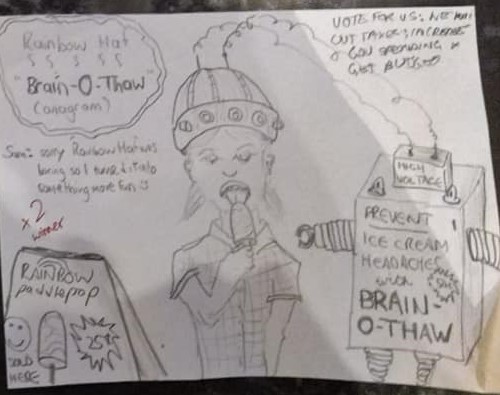 Rainbow Hat
"Brain-O-Thaw"
(anagram)
VOTE FOR US: WE
CUT TAXES, INCREASE
GOV SPENDING &
GET
Sam: sorry Rainbow Hat was
boring so I turned it into
something more fun
x2
winner
RAINBOW
paddlepop
25¢
SOLD
HERE
HIGH
VOLTAGE
PREVENT
ICE CREAM
HEADACHES
with
BRAIN-
O-THAW